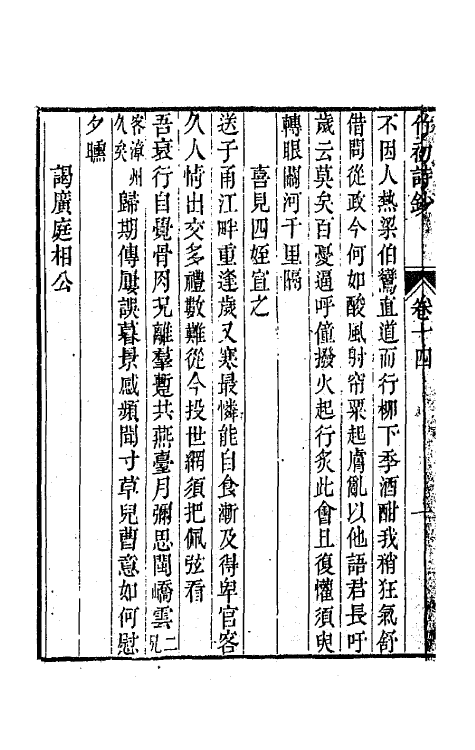 竹初詩鈔 卷十四
不因人熱梁伯鸞直道而行柳下季酒酣我稍狂氣舒
借問從政今何如酸風射帘粟起膚亂以他語君長吁
歲云莫矣百憂逼呼僮撥火起行炙此會且復懽須臾
轉眼關河千里隔
喜見四姪宣之
送子甬江畔重逢歲又寒最憐能自食漸及得卑官客
久人情出交多禮數難從今投世網須把佩弦看
吾衰行自覺骨肉況離羣蹔共燕臺月彌思閩嶠雲二兄
客漳州久矣歸期傳屢誤暮景感頻聞寸草兒曹意如何慰
夕曛
謁廣庭相公